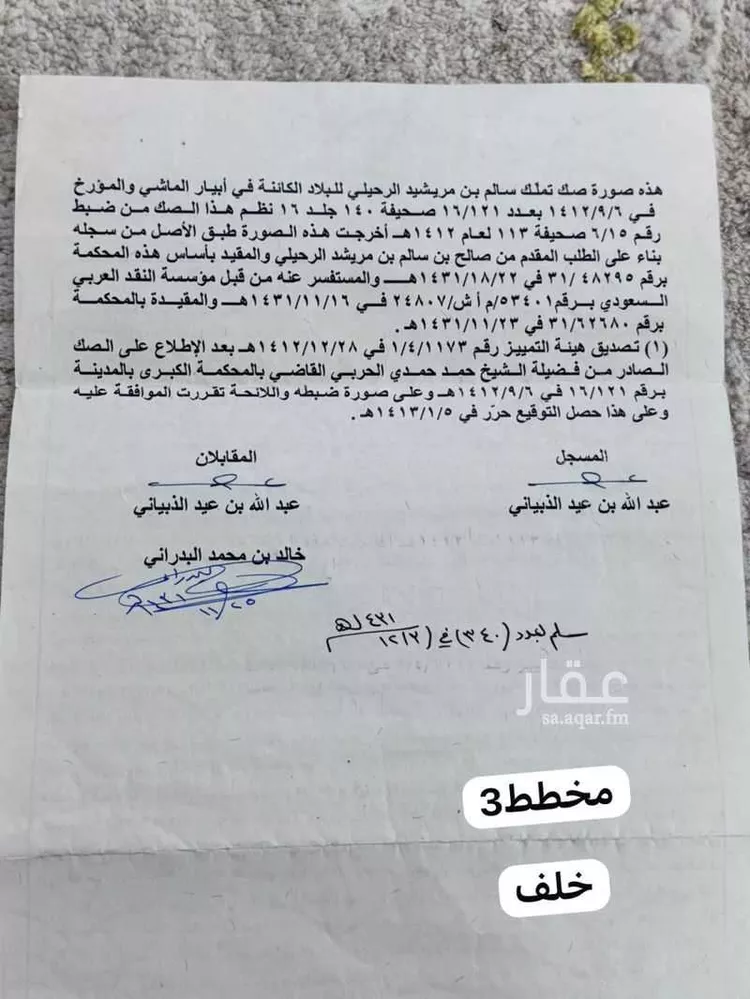 هذه صورة صك تملك سالم بن مريشيد الرحيلي للبلاد الكائنة في أبيار الماشي والمؤرخ
في ١٤١٢/٩/٦ بعدد ١٦/١٢١ صحيفة ١٤٠ جلد ١٦ نظم هذا الصك من ضبط
رقم ٦/١٥ صحيفة ١١٣ لعام ١٤١٢هـ أخرجت هذه الصورة طبق الأصل من سجله
بناء على الطلب المقدم من صالح بن سالم بن مريشد الرحيلي والمقيد بأساس هذه المحكمة
برقم ٣١/٤٨٢٩٥ في ١٤٣١/١٨/٢٢هـ والمستفسر عنه من قبل مؤسسة النقد العربي
السعودي برقم٥٣٤٠١/م أ ش/٢٤٨٠٧ في ١٤٣١/١١/١٦هـ والمقيدة بالمحكمة
برقم ٣١/٦٢٦٨٠ في ١٤٣١/١١/٢٣هـ .
(١) تصديق هيئة التمييز رقم ١/٤/١١٧٣ في ١٤١٢/١٢/٢٨هـ بعد الإطلاع على الصك
الصادر من فضيلة الشيخ حمد حمدي الحربي القاضي بالمحكمة الكبرى بالمدينة
برقم ١٦/١٢١ في ١٤١٢/٩/٦هـ وعلى صورة ضبطه واللائحة تقررت الموافقة عليه
وعلى هذا حصل التوقيع حرّر في ١٤١٣/١/٥هـ .
المسجل المقابلان
عبد الله بن عيد الذبياني عبد الله بن عيد الذبياني
خالد بن محمد البدراني
١١/٢٥
سلم لعدد (٣٤٠) في ١٢/٢
عقار
sa.aqar.fm
مخطط3
خلف